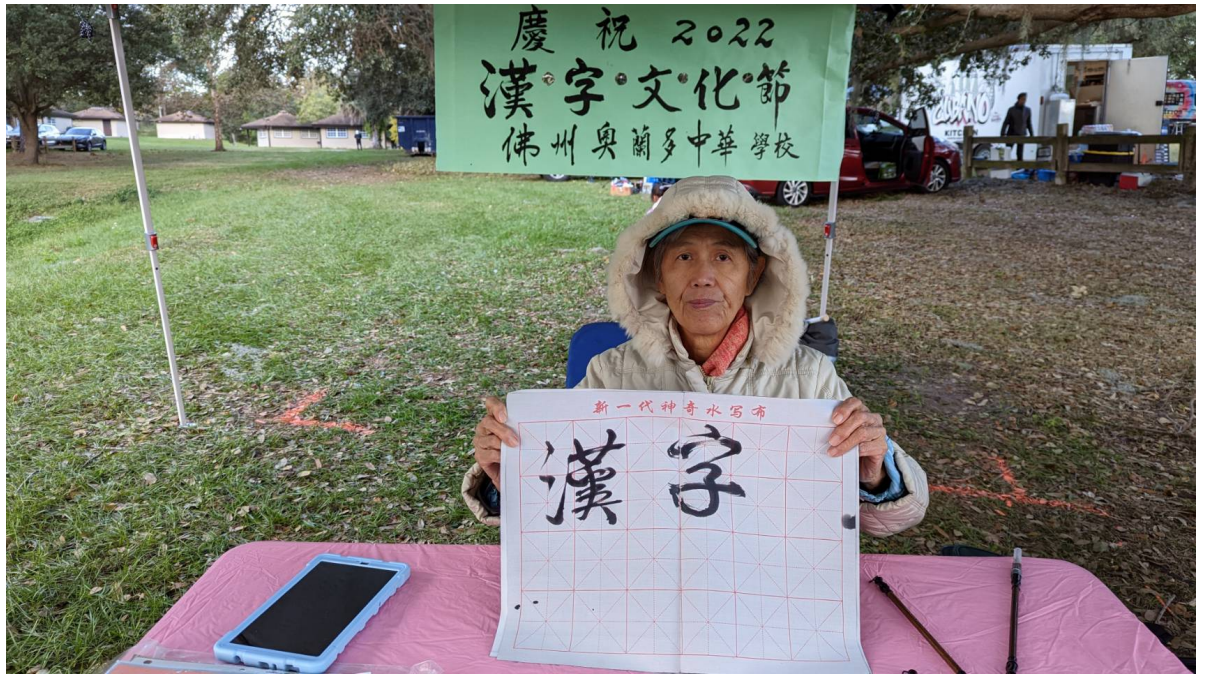 慶祝2022
漢字文化節
佛州奥蘭多中華學校
KITCH
新一代神奇水写布
漢字